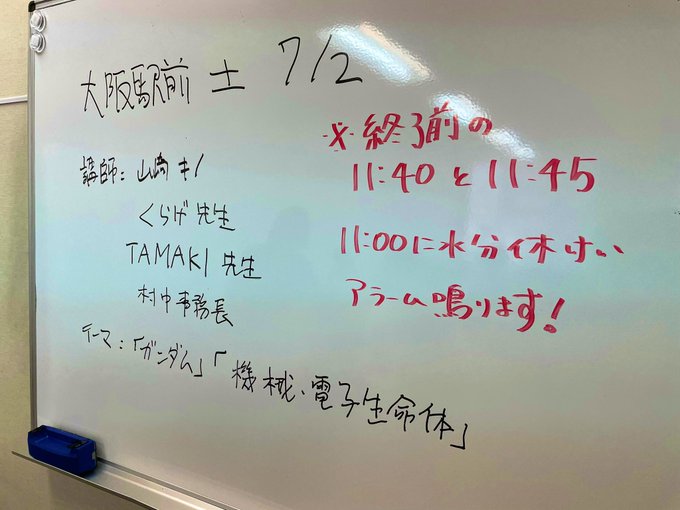 大阪駅前 土 7/2
講師:山崎キノ
くらげ先生
TAMAKI 先生
村中事務長
テーマ:「ガンダム」「機械、電子生命体」
※終了前の
11:40と11:45
11:00に水分休けい
アラーム鳴ります!